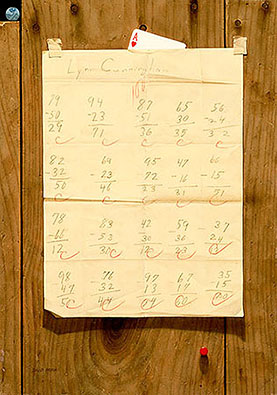 A
Lynn Cunningham
79 94 87 65 56
-50 -23 -51 30 -24
29 71 36 35 32
C C C C C
82 69 95 47 66
-32 -23 -72 -16 -15
50 46 23 31 51
C C C C C
78 83 42 59 37
-66 -52 30 36 24
12 12 23
98 76 97 67 35
47 32 13 17 15
44